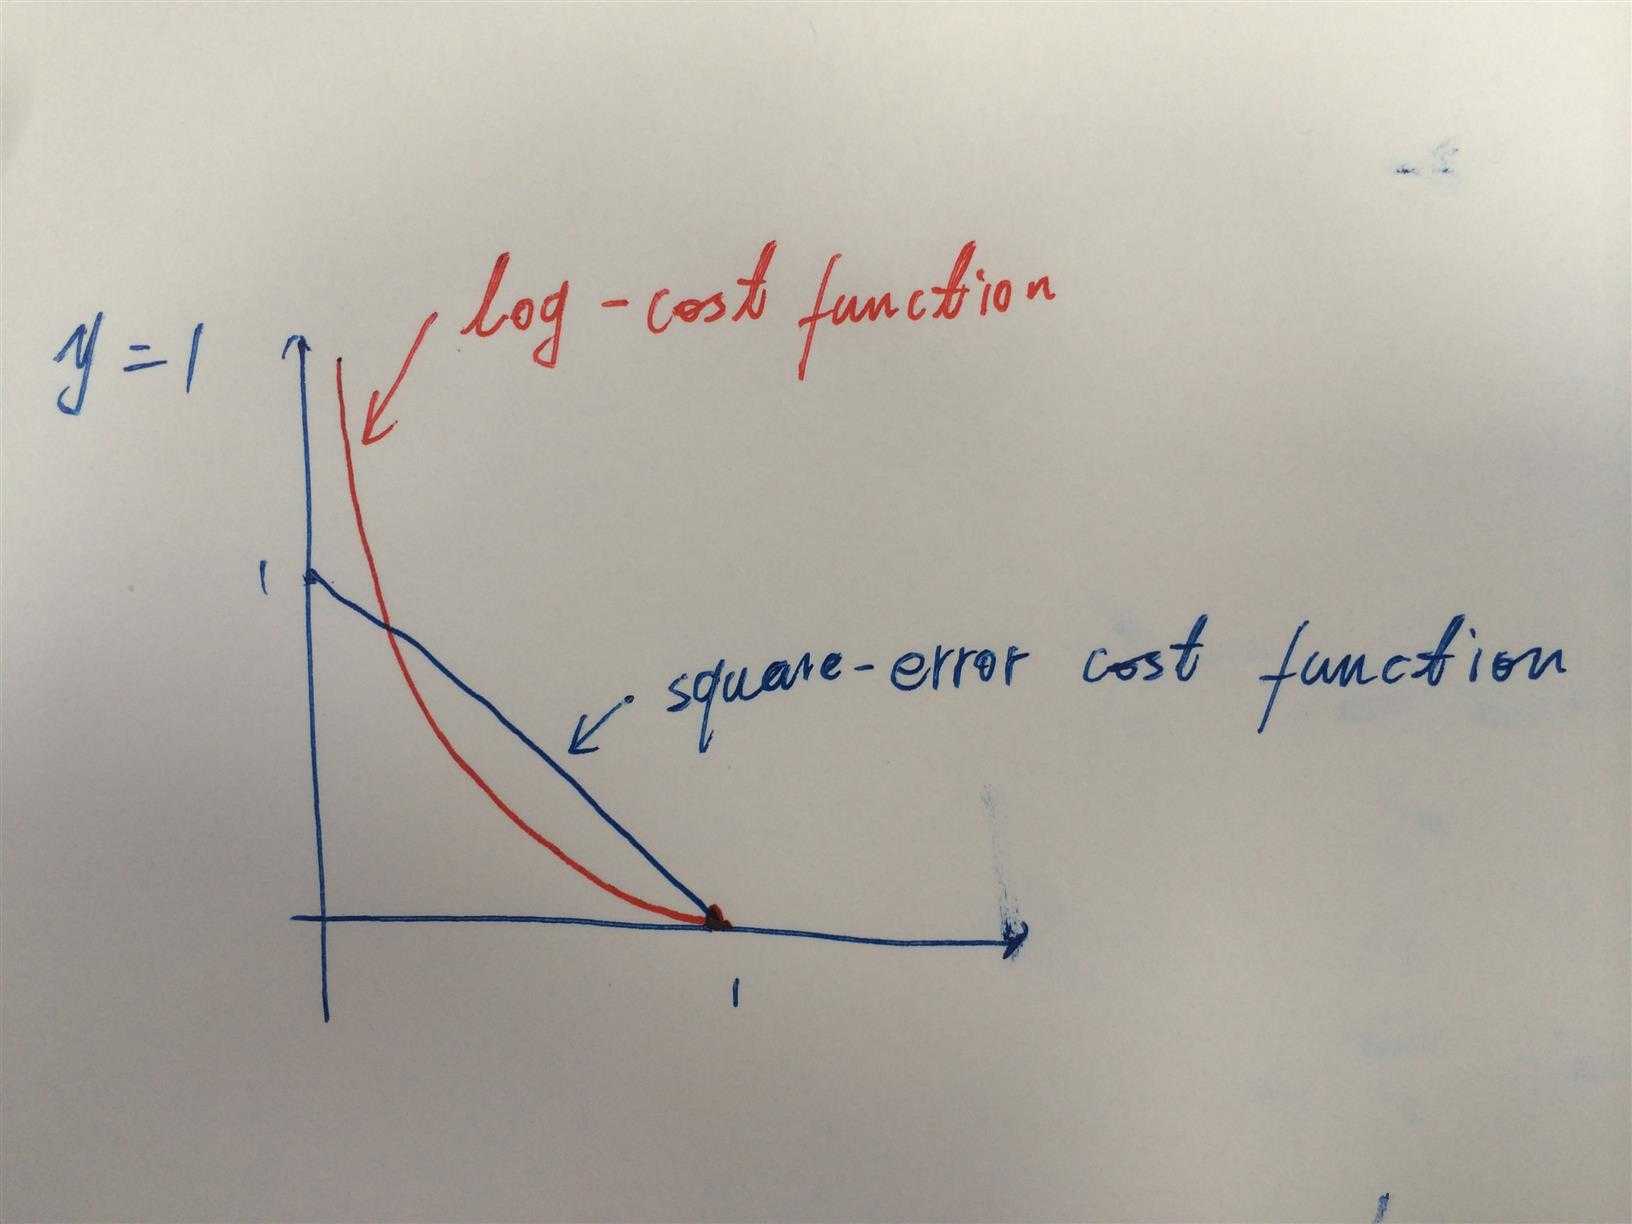 log-cost function
y=1
1
square-error cost function
1